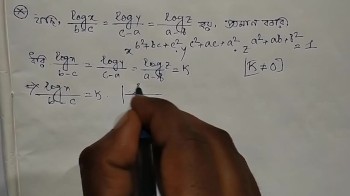 যদি, logx/b-c = logy/c-a = logz/a-b হয়, প্রমাণ করো,
x^b²+bc+c² . y^c²+ac+a² . z^a²+ab+b² = 1
ধরি logx/b-c = logy/c-a = logz/a-b = K [K ≠ 0]
⇒ logx/b-c = K